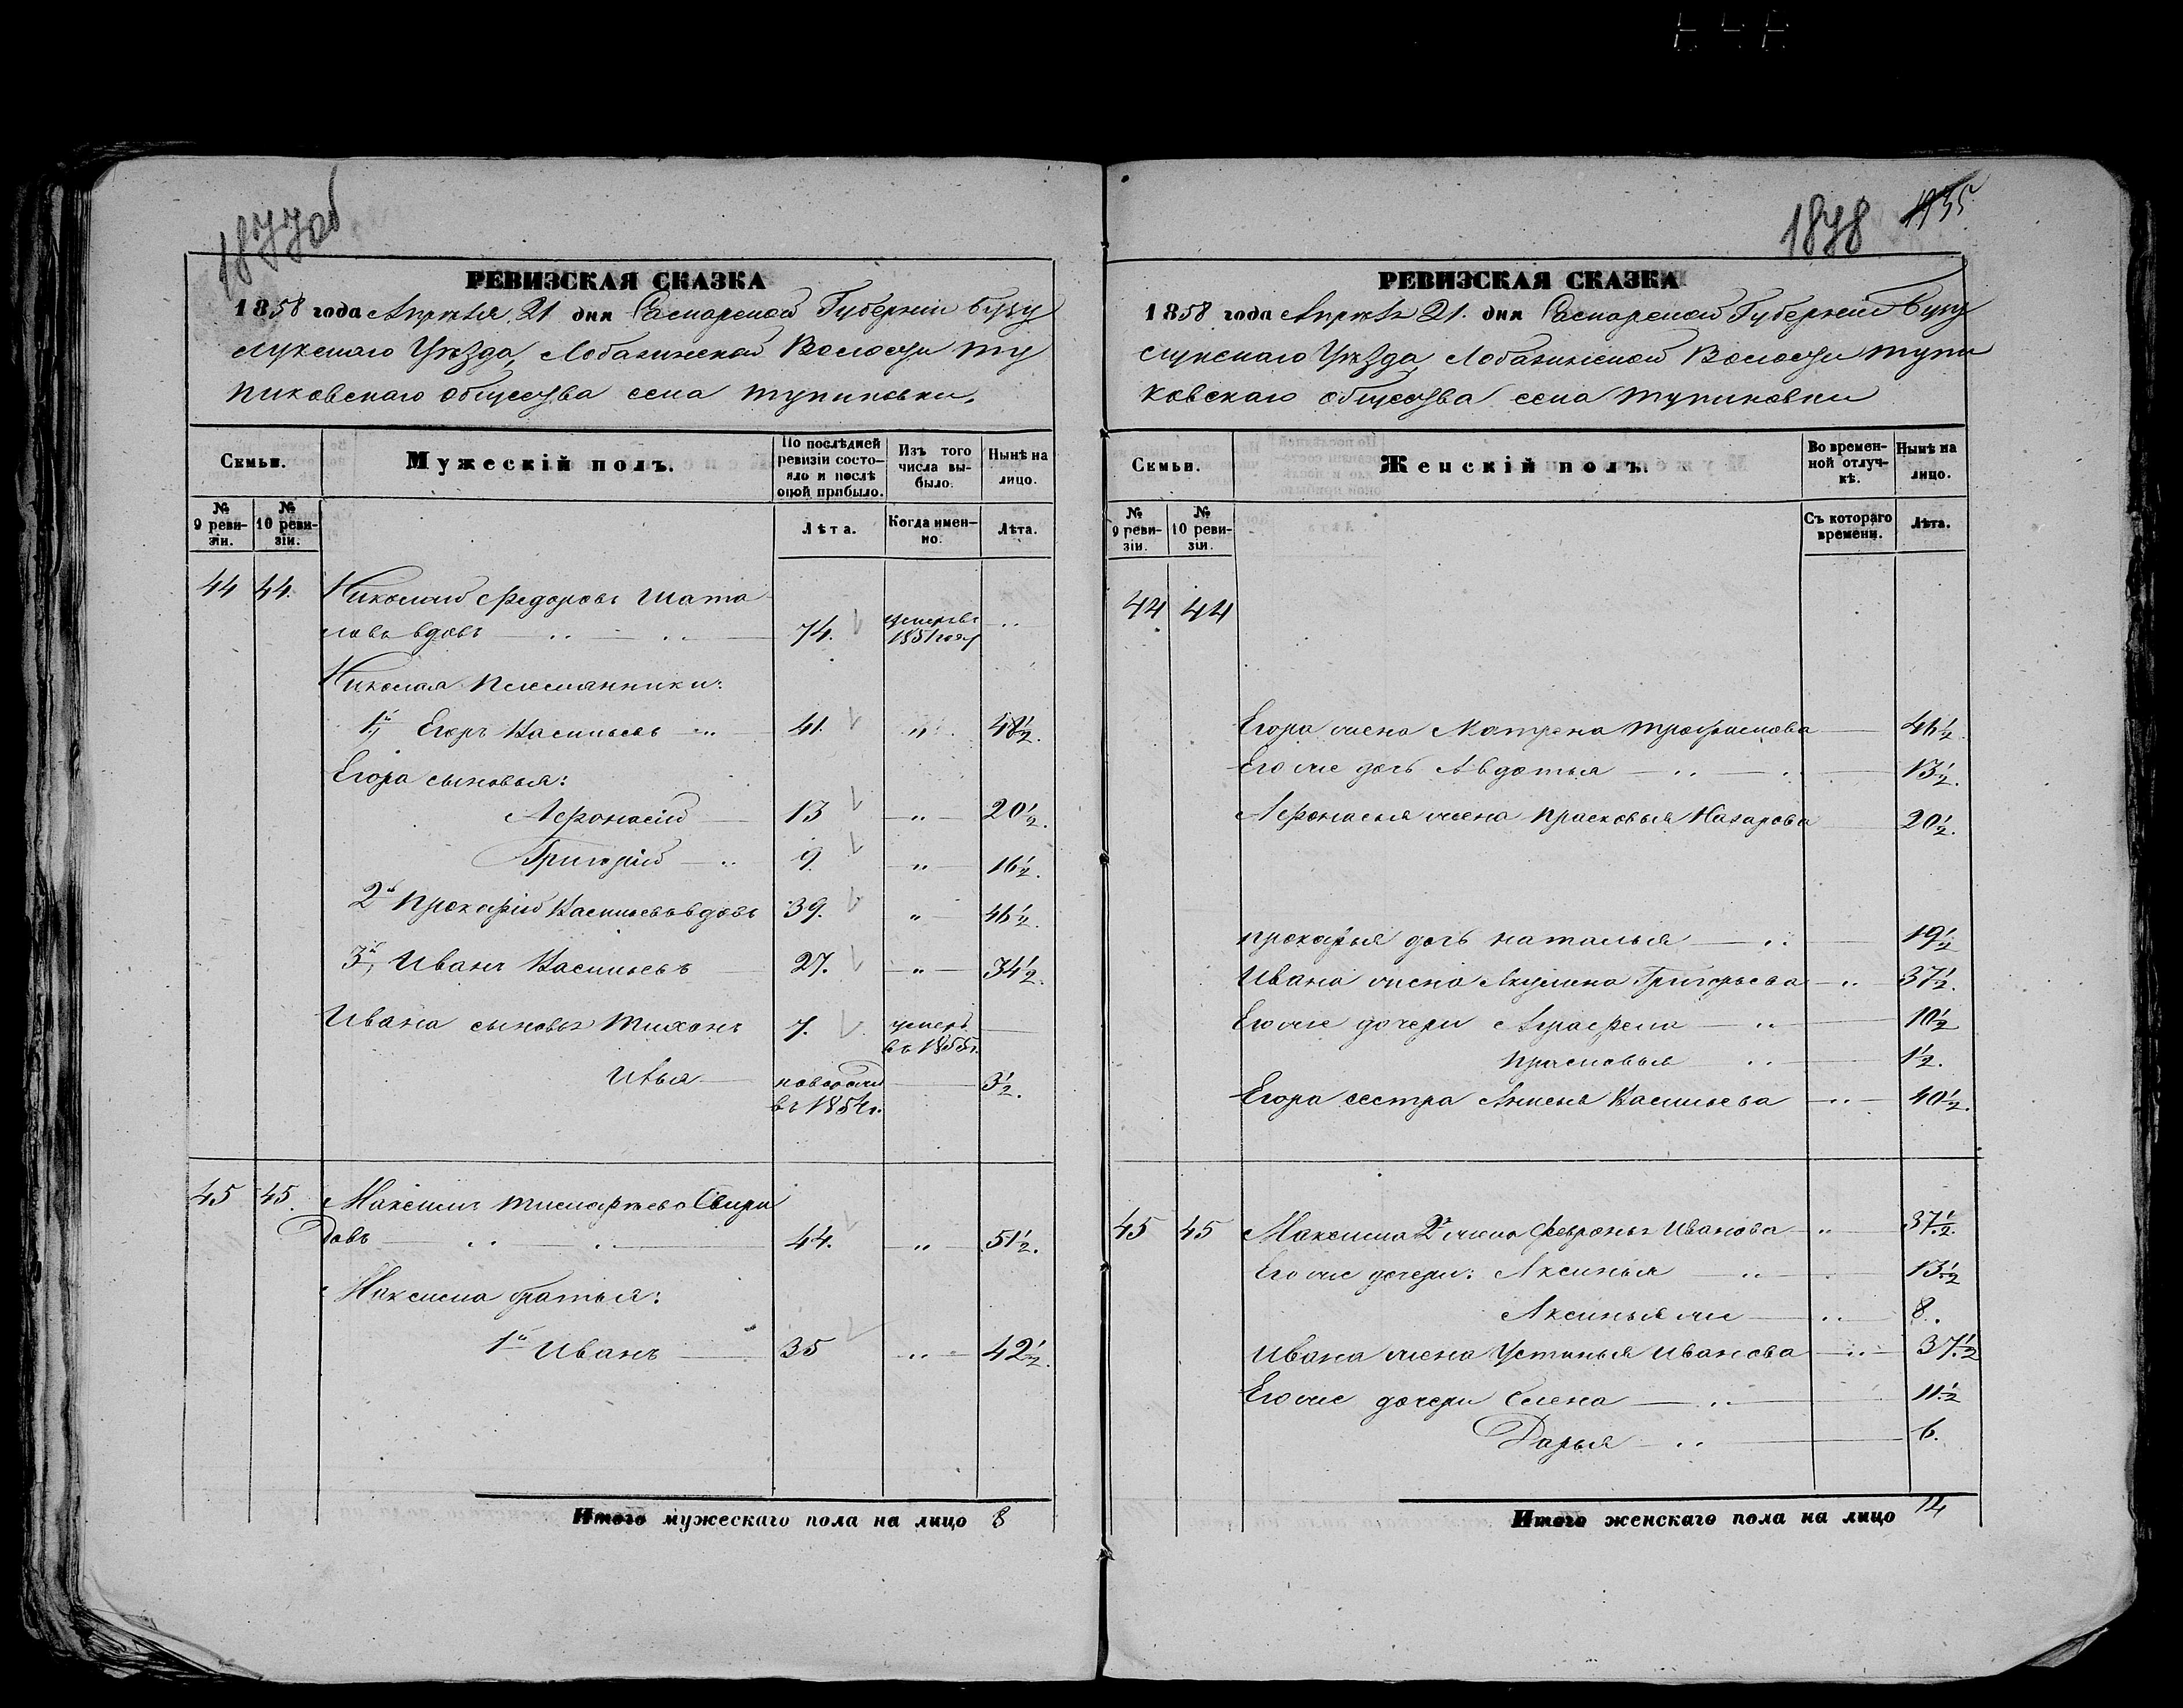 1877 об
РЕВИЗСКАЯ СКАЗКА
1858 года Апрѣля 21 дня Самарской Губерніи Бугу
сулукскаго Уѣзда, Лобазинской Волости Ту
пиковскаго общества села Тупиковки.
Семьи.
Мужескій полъ.
По послѣдней
ревизіи состо-
яло и послѣ
оной прибыло.
Изъ того
числа вы-
было.
Нынѣ на
лицо.
№
9 реви-
зіи.
№
10 реви-
зіи.
Лѣта.
Когда имен-
но.
Лѣта.
44 44. Николай Федоровъ Шата
ловъ вдовъ 74. умеръ въ 1851 году
Николая племянники:
1й Егоръ Васильевъ 41. " 48½.
Егора сыновья:
Афонасій 13 " 20½.
Григорій 9. " 16½.
2й Прокофій Васильевъ вдовъ 39. " 46½.
3й, Иванъ Васильевъ 27. " 34½.
Ивана сыновья Тихонъ 7. умеръ въ 1855 г.
Илья новорож въ 1854 г. 3½.
45 45. Максимъ Тимофѣевъ Свири
довъ 44. " 51½.
Максима братья:
1й Иванъ 35 " 42½.
Итого мужескаго пола на лицо 8
1878 1135
РЕВИЗСКАЯ СКАЗКА
1858 года Апрѣля 21. дня Самарской Губерніи Бугу
сулукскаго Уѣзда, Лобазинской Волости Тупи
ковскаго общества села Тупиковки
Семьи.
Женскій полъ.
Во времен-
ной отлуч-
кѣ.
Нынѣ на
лицо.
№
9 реви-
зіи.
№
10 реви-
зіи.
Съ котораго
времени.
Лѣта.
44 44
Егора жена Матрена Трофимова 46½.
Его же дочь Авдотья 13½.
Афонасья жена Прасковья Назарова 20½.
Прокофья дочь Наталья 19½
Ивана жена Акулина Григорьева 37½.
Его же дочери Аграфена 10½
Прасковья 1½.
Егора сестра Анисья Васильева 40½.
45 45 Максима 2я жена Февронья Иванова 37½.
Его же дочери: Аксинья 13½
Аксинья же 8.
Ивана жена Устинья Иванова 37½
Его же дочери Елена 11½
Дарья 6.
Итого женскаго пола на лицо 14